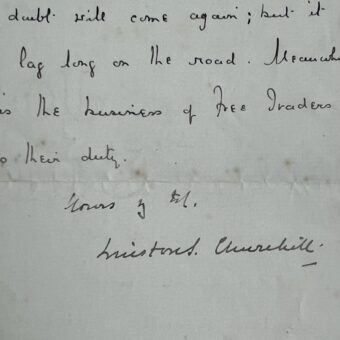 doubt will come again; but it
lag long on the road. Meanwhi
is the business of Free Traders
o their duty.
Yours
Winston S. Churchill.